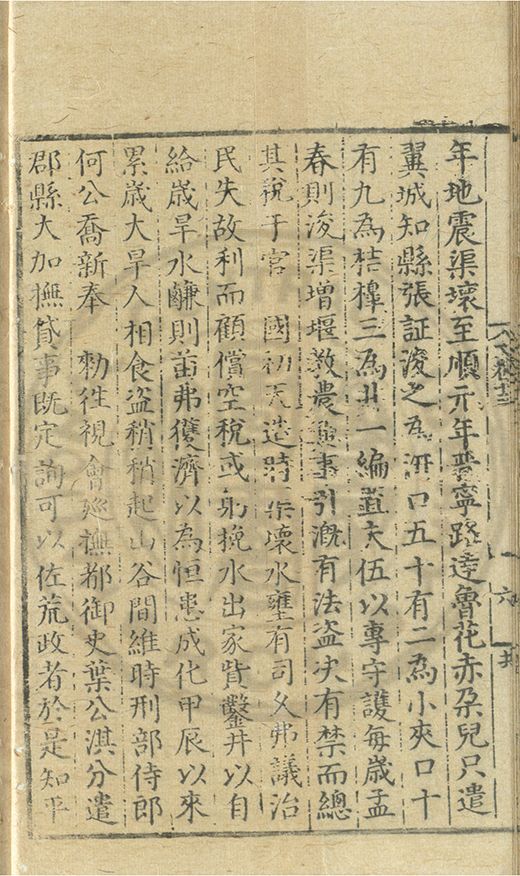 年地震渠壞至順元年晉寧路達魯花赤朶兒只遣
翼城知縣張証浚之為洞口五十有二為小夾口十
有九為桔槹三為井一編置夫伍以專守護每歲孟
春則浚渠增堰敎農事引漑有法盜决有禁而總
其稅于官 國初天造時渠壞水壅有司乆弗議治
民失故利而顧償空稅或躬挽水出家貲鑿井以自
給歲旱水鹻則苗弗獲濟以為恒患成化甲辰以來
累歲大旱人相食盜稍稍起山谷間維時刑部侍郎
何公喬新奉 勑徃視會廵撫都御史葉公淇分遣
郡縣大加撫貸事既定詢可以佐荒政者於是知平
卷十三
六